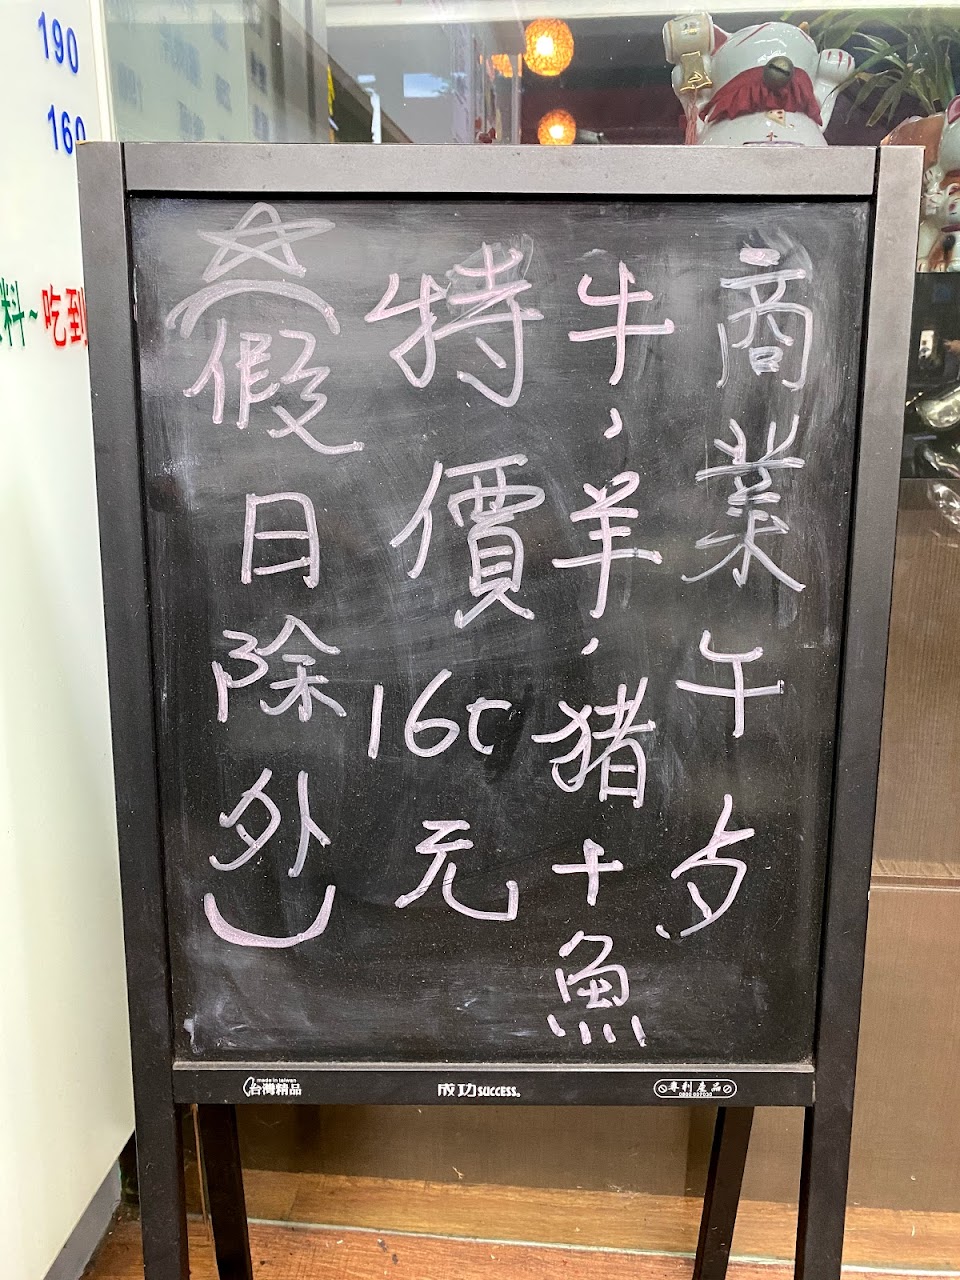 商業午夕
牛、羊、猪+魚
特價160元
☆(假日除外)
190
160
料~吃到
made in taiwan
台灣精品
成功 SUCCESS.
專利產品